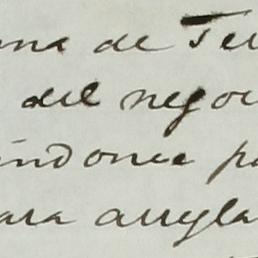 una de Te
del nego
indonce p
ara arregla